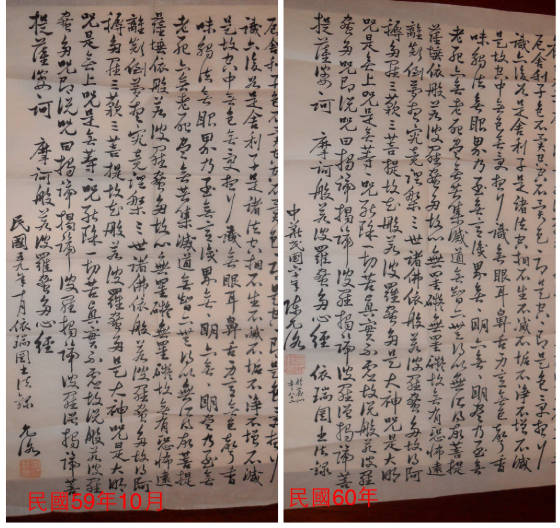 舍利子色不異空空不異色色即是空空即是色
識亦復如是舍利子是諸法空相不生不滅不垢不淨不增不減
是故空中無色無受想行識無眼耳鼻舌身意無色聲香
味觸法無眼界乃至無意識界無無明亦無無明盡乃至無
老死亦無老死盡無苦集滅道無智亦無得以無所得故菩提
薩埵依般若波羅蜜多故心無罣礙無罣礙故無有恐怖遠
離顛倒夢想究竟涅槃三世諸佛依般若波羅蜜多故得阿
耨多羅三藐三菩提故知般若波羅蜜多是大神咒是大明
咒是無上咒是無等等咒能除一切苦真實不虛故說般若波羅
蜜多咒即說咒曰揭諦揭諦波羅揭諦波羅僧揭諦菩
提薩婆訶 摩訶般若波羅蜜多心經
民國五九年十月依瑞圖書法錄
民國59年10月
舍利子色不異空空不異色色即是空空即是色
識亦復如是舍利子是諸法空相不生不滅不垢不淨不增不減
是故空中無色無受想行識無眼耳鼻舌身意無色聲香
味觸法無眼界乃至無意識界無無明亦無無明盡乃至無
老死亦無老死盡無苦集滅道無智亦無得以無所得故菩提
薩埵依般若波羅蜜多故心無罣礙無罣礙故無有恐怖遠
離顛倒夢想究竟涅槃三世諸佛依般若波羅蜜多故得阿
耨多羅三藐三菩提故知般若波羅蜜多是大神咒是大明
咒是無上咒是無等等咒能除一切苦真實不虛故說般若波羅
蜜多咒即說咒曰揭諦揭諦波羅揭諦波羅僧揭諦菩
提薩婆訶 摩訶般若波羅蜜多心經 依瑞圖書法錄
中華民國六十年 陳
民國60年